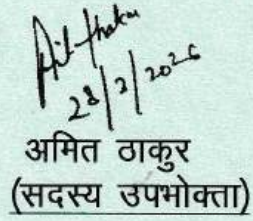 Amit Thakur
28/2/2026
अमित ठाकुर
(सदस्य उपभोक्ता)